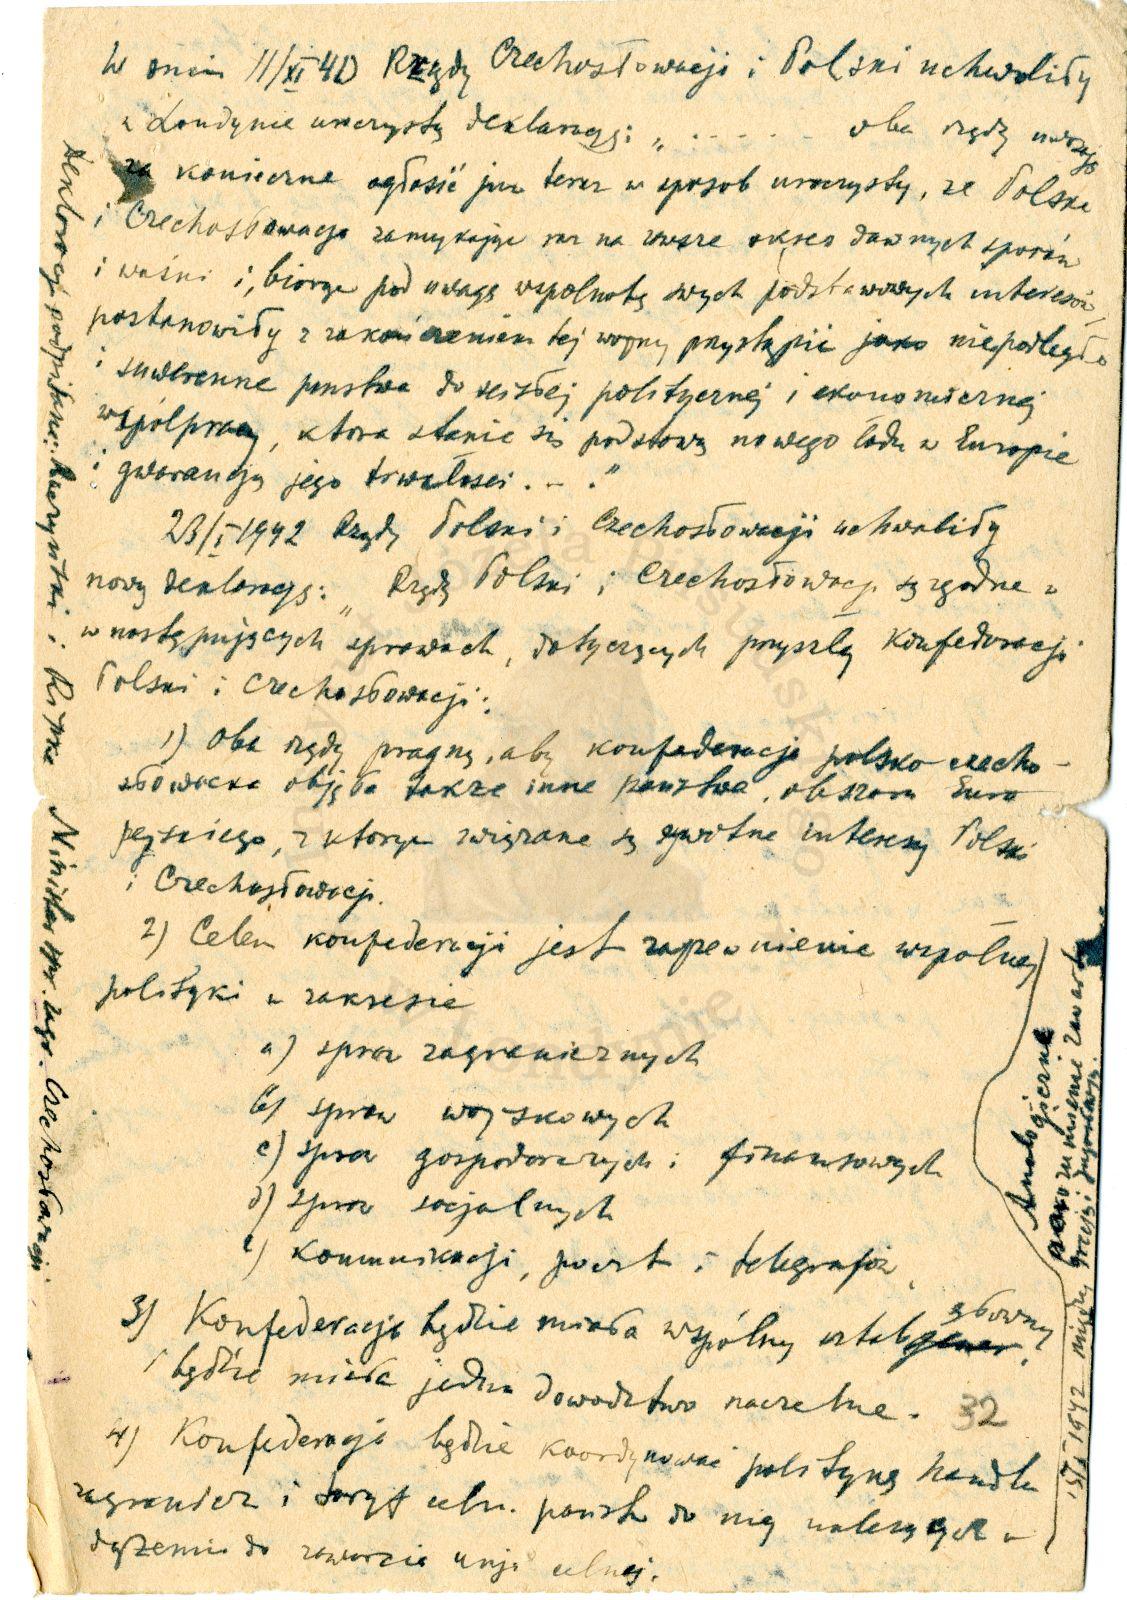 W dniu 11/XI 40 Rządy Czechosłowacji i Polski uchwaliły
w Londynie uroczystą deklarację: „ . - - - - - oba rządy uważają
za konieczne ogłosić już teraz w sposób uroczysty, że Polska
i Czechosłowacja zamykając raz na zawsze okres dawnych sporów
i waśni i, biorąc pod uwagę wspólnotę swych podstawowych interesów,
postanowiły z zakończeniem tej wojny przystąpić jako niepodległe
i suwerenne państwa do ścisłej politycznej i ekonomicznej
współpracy, która stanie się podstawą nowego ładu w Europie
i gwarancją jego trwałości. - . "
23/I 1942 Rządy Polski i Czechosłowacji uchwaliły
nową deklarację: „ Rządy Polski i Czechosłowacji są zgodne w
w następujących sprawach, dotyczących przyszłej Konfederacji
Polski i Czechosłowacji:
1) Oba rządy pragną, aby konfederacja polsko czecho-
słowacka objęła także inne państwa, obszaru Euro
pejskiego, z którym związane są żywotne interesy Polski
i Czechosłowacji.
2) Celem konfederacji jest zapewnienie wspólnej
polityki w zakresie
a) spraw zagranicznych
b) spraw wojskowych
c) spraw gospodarczych i finansowych
d) spraw socjalnych
e) komunikacji, poczt i telegrafów.
3) Konfederacja będzie miała wspólny sztab główny
i będzie miała jedno dowództwo naczelne.
32
4) Konfederacja będzie koordynować politykę handlu
zagranicz i taryf celn. państw do niej należących w
dążeniu do zawarcia unji celnej.
Deklarację podpisane: Raczyński i Ripka Minister spr. zagr. Czechosłowacji
Analogiczne
porozumienie zawarto
15/I 1942 między Grecją i Jugosławją.